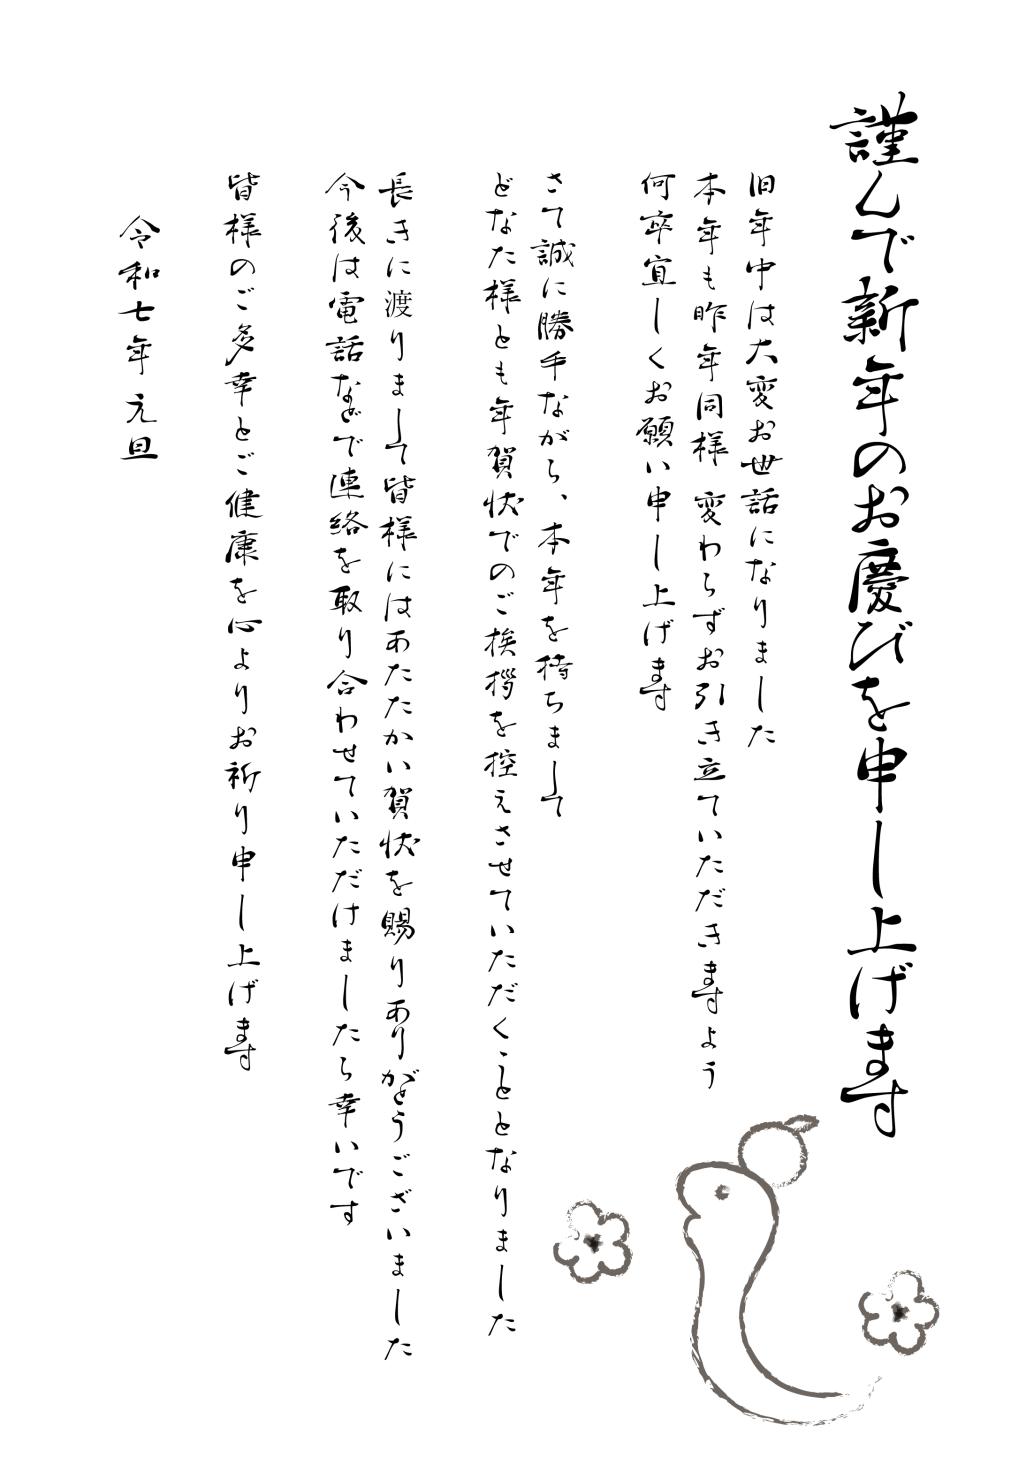 謹んで新年のお慶びを申し上げます
旧年中は大変お世話になりました
本年も昨年同様 変わらずお引き立ていただきますよう
何卒宜しくお願い申し上げます
さて誠に勝手ながら、本年を持ちまして
どなた様とも年賀状でのご挨拶を控えさせていただくこととなりました
長きに渡りまして皆様にはあたたかい賀状を賜りありがとうございました
今後は電話などで連絡を取り合わせていただけましたら幸いです
皆様のご多幸とご健康を心よりお祈り申し上げます
令和七年 元旦